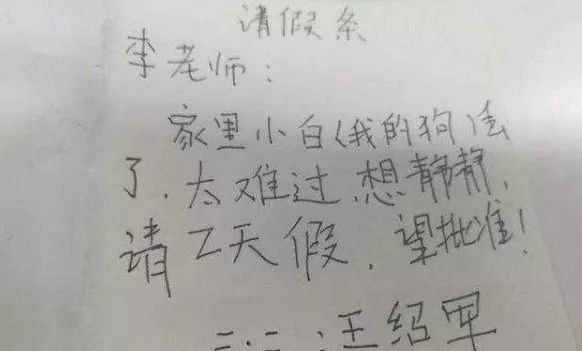 请假条
李老师：
家里小白(我的狗)丢
了.太难过.想静静,
请2天假,望批准!
王绍